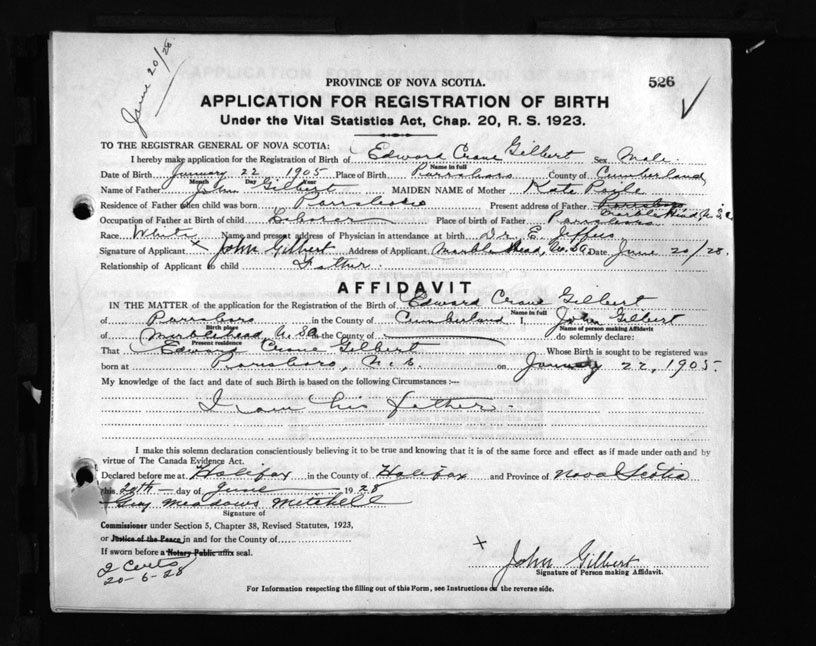 June 20/28
PROVINCE OF NOVA SCOTIA.
526
APPLICATION FOR REGISTRATION OF BIRTH
Under the Vital Statistics Act, Chap. 20, R. S. 1923.
TO THE REGISTRAR GENERAL OF NOVA SCOTIA:
I hereby make application for the Registration of Birth of Edward Crane Gilbert Sex Male.
Name in full
Date of Birth January 22 1905 Place of Birth Parrsboro County of Cumberland
Month Day Year
Name of Father John Gilbert MAIDEN NAME of Mother Kate
Residence of Father when child was born Parrsboro Present address of Father Parrsboro
Marblehead, U.S.A.
Occupation of Father at Birth of child Laborer Place of birth of Father Parrsboro
Race White Name and present address of Physician in attendance at birth Dr. E. Jeffers
Signature of Applicant x John Gilbert Address of Applicant Marblehead, U.S.A. Date June 20/28.
Relationship of Applicant to child Father.
AFFIDAVIT
IN THE MATTER of the application for the Registration of the Birth of Edward Crane Gilbert
Name in full
of Parrsboro in the County of Cumberland I, John Gilbert
Birth place Name of person making Affidavit
of Marblehead, U.S.A. in the County of do solemnly declare:
Present residence
That Edward Crane Gilbert Whose Birth is sought to be registered was
born at Parrsboro, N.S. on January 22, 1905.
My knowledge of the fact and date of such Birth is based on the following Circumstances :—
I am his father.
I make this solemn declaration conscientiously believing it to be true and knowing that it is of the same force and effect as if made under oath and by
virtue of The Canada Evidence Act.
Declared before me at Halifax in the County of Halifax and Province of Nova Scotia
this 20th day of June 1928
Guy Meadows Mitchell
Signature of
Commissioner under Section 5, Chapter 38, Revised Statutes, 1923,
or Justice of the Peace in and for the County of
If sworn before a Notary Public affix seal.
2 Certs
20-6-28
x John Gilbert
Signature of Person making Affidavit.
For Information respecting the filling out of this Form, see Instructions on the reverse side.